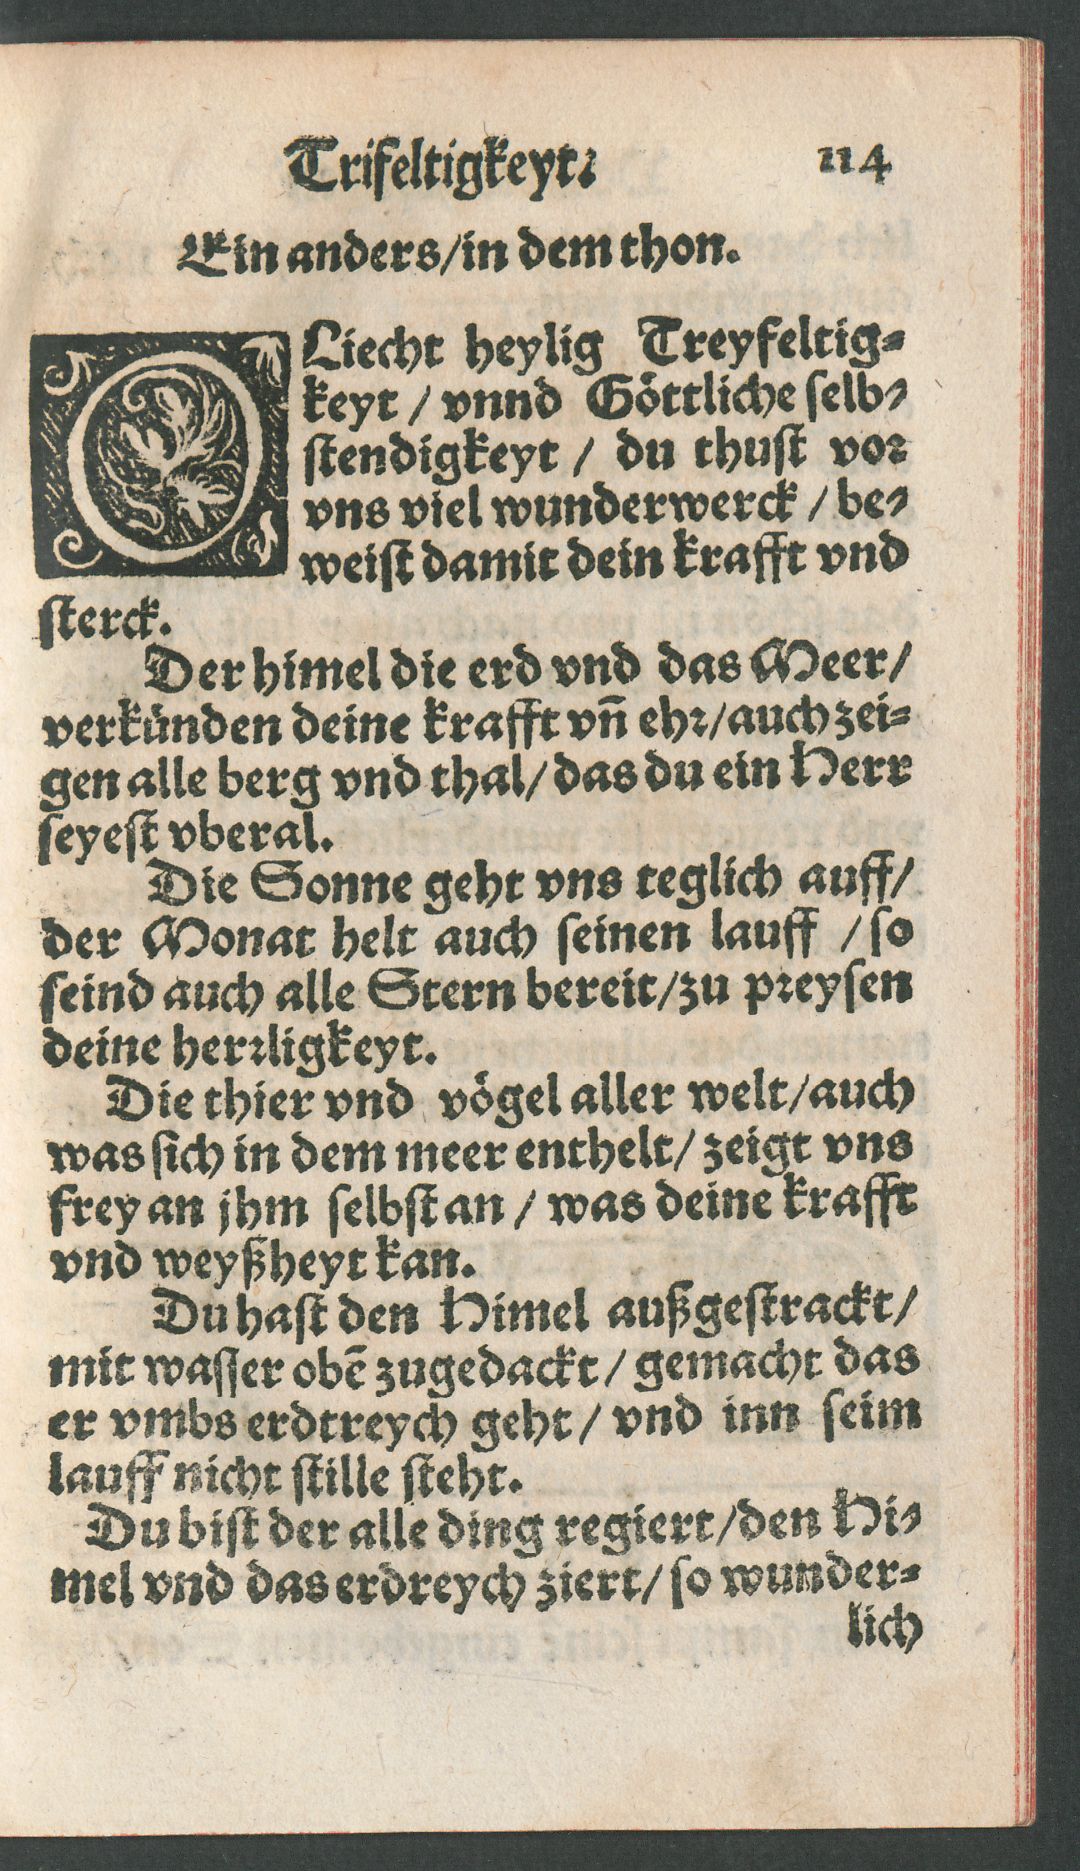 Trifeltigkeyt. 114
Ein anders/in dem thon.
O Liecht heylig Treyfeltig-
keyt / vnnd Göttliche selb-
stendigkeyt / du thust vor
vns viel wunderwerck / be-
weist damit dein krafft vnd
sterck.
Der himel die erd vnd das Meer/
verkünden deine krafft vñ ehr/auch zei-
gen alle berg vnd thal/das du ein Herr
seyest vberal.
Die Sonne geht vns teglich auff/
der Monat helt auch seinen lauff /so
seind auch alle Stern bereit/zu preysen
deine herrligkeyt.
Die thier vnd vögel aller welt/auch
was sich in dem meer enthelt/zeigt vns
frey an jhm selbst an / was deine krafft
vnd weyßheyt kan.
Du hast den Himel außgestrackt/
mit wasser obẽ zugedackt / gemacht das
er vmbs erdtreych geht / vnd inn seim
lauff nicht stille steht.
Du bist der alle ding regiert/den Hi-
mel vnd das erdreych ziert/so wunder-
lich